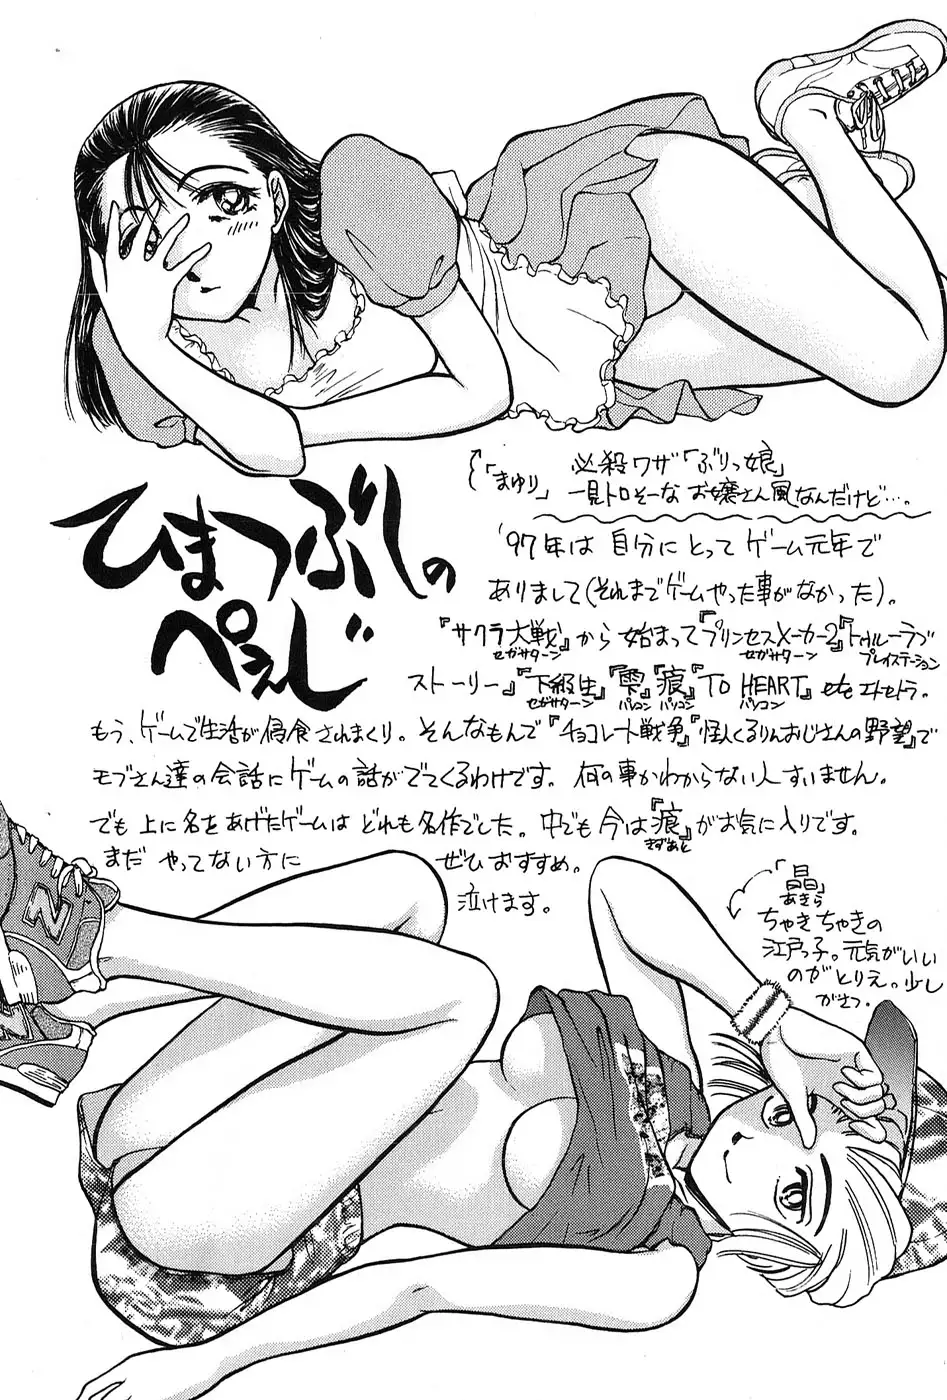 「まゆり」
必殺ワザ「ぶりっ娘」
一見トロそーなお嬢さん風なんだけど…。
ひまつぶしの
ぺえじ
'97年は自分にとってゲーム元年で
ありまして(それまでゲームやった事がなかった)。
『サクラ大戦』から始まって『プリンセスメーカー2』『トゥルーラブ
セガサターン セガサターン プレイステーション
ストーリー』『下級生』『雫』『痕』『TO HEART』etcエトセトラ。
セガサターン パソコン パソコン パソコン
もう、ゲームで生活が侵食されまくり。そんなもんで『チョコレート戦争』『怪人くるりんおじさんの野望』で
モブさん達の会話にゲームの話がでてくるわけです。何の事かわからない人すいません。
でも上に名をあげたゲームはどれも名作でした。中でも今は『痕』がお気に入りです。
きずあと
まだやってない方に ぜひおすすめ。
泣けます。
「晶」
あきら
ちゃきちゃきの
江戸っ子。元気がいい
のがとりえ。少し
がさつ。
N
N